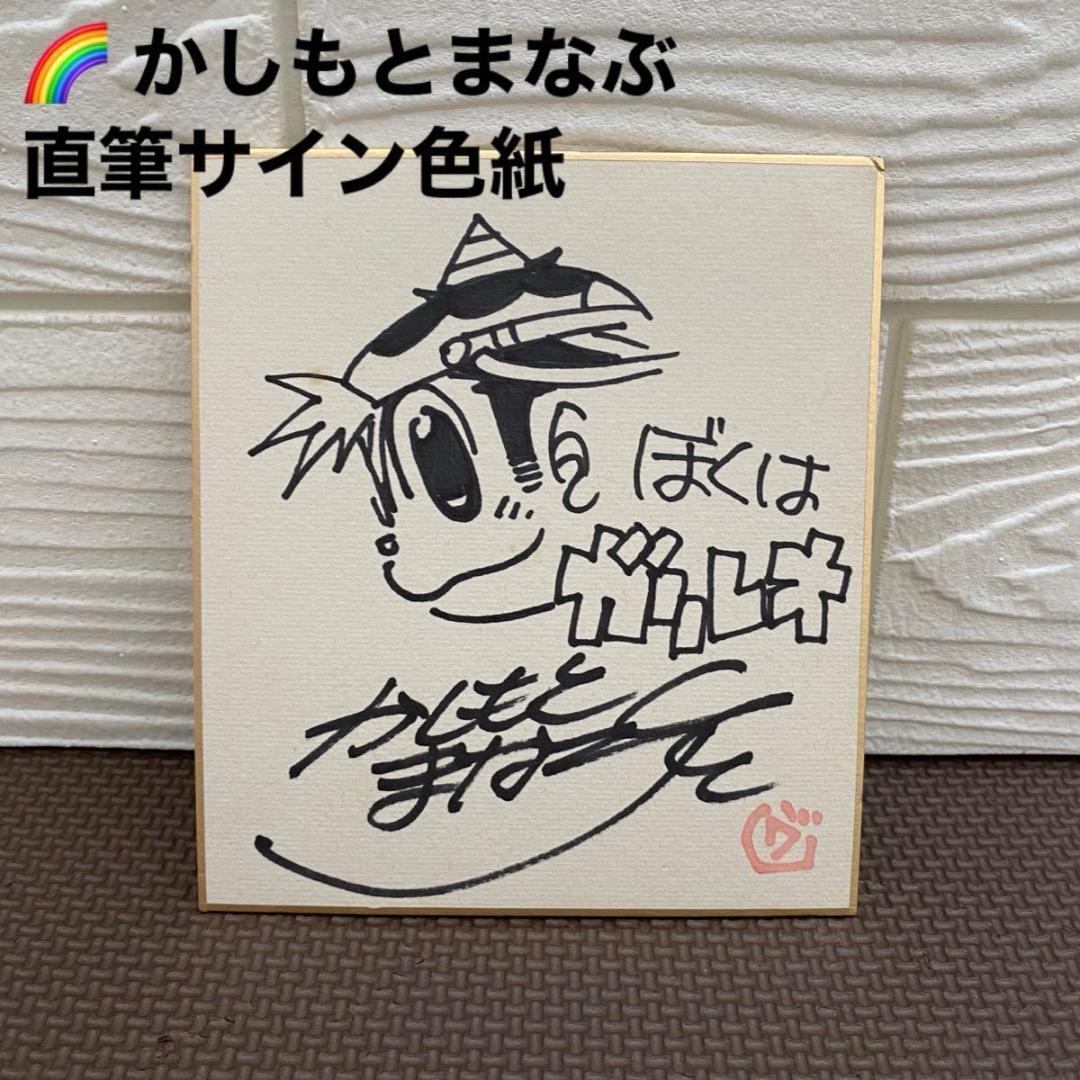 🌈 かしもとまなぶ
直筆サイン色紙
ぼくは
ガッレキ
かしもと
まなぶ